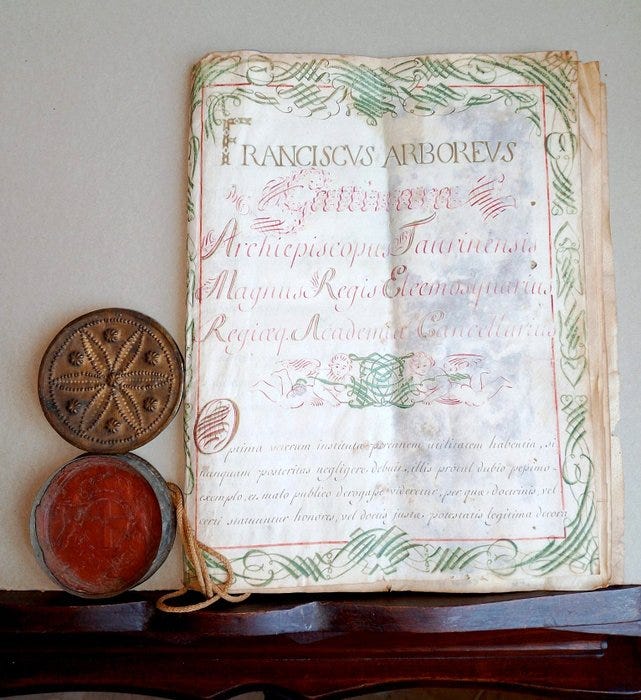 FRANCISCVS ARBOREVS
Gattinara
Archiepiscopus Taurinensis
Magnus Regis Eleemosynarius
Regiæq. Academiæ Cancellarius
Optima rerum instituta perennem utilitatem habentia, si
nunquam posteritas negligere debuit, illis procul dubio pessimo
exemplo, et malo publico derogasse videretur, per quæ doctrinis, vel
certi statuuntur honores, vel doctis justa potestatis legitima decora